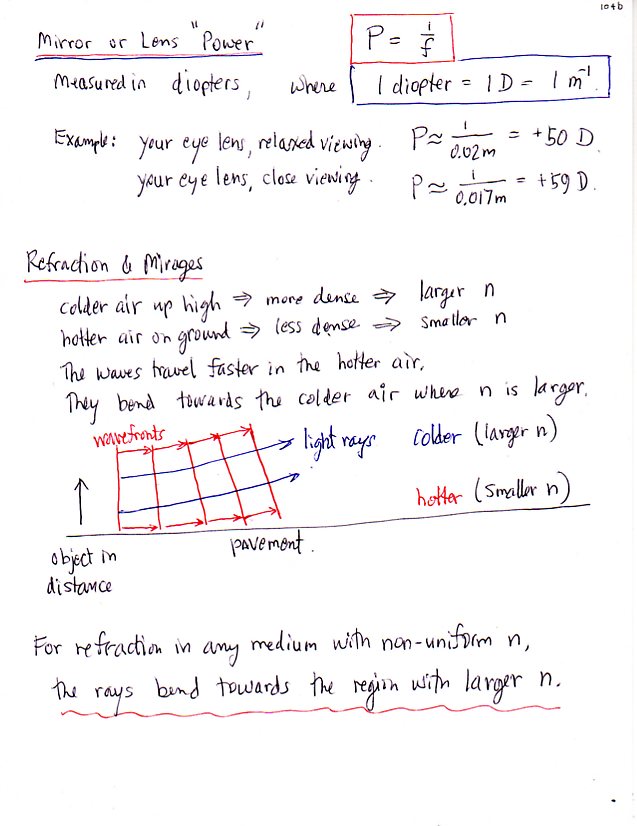 104b
Mirror or Lens "Power" P = 1/f
Measured in diopters, where 1 diopter = 1D = 1 m⁻¹.
Example: your eye lens, relaxed viewing. P ≈ 1/0.02m = +50 D.
your eye lens, close viewing. P ≈ 1/0.017m = +59 D.
Refraction & Mirages
colder air up high ⇒ more dense ⇒ larger n
hotter air on ground ⇒ less dense ⇒ smaller n
The waves travel faster in the hotter air.
They bend towards the colder air where n is larger.
wavefronts
light rays colder (larger n)
hotter (smaller n)
object in
distance
pavement.
For refraction in any medium with non-uniform n,
the rays bend towards the region with larger n.